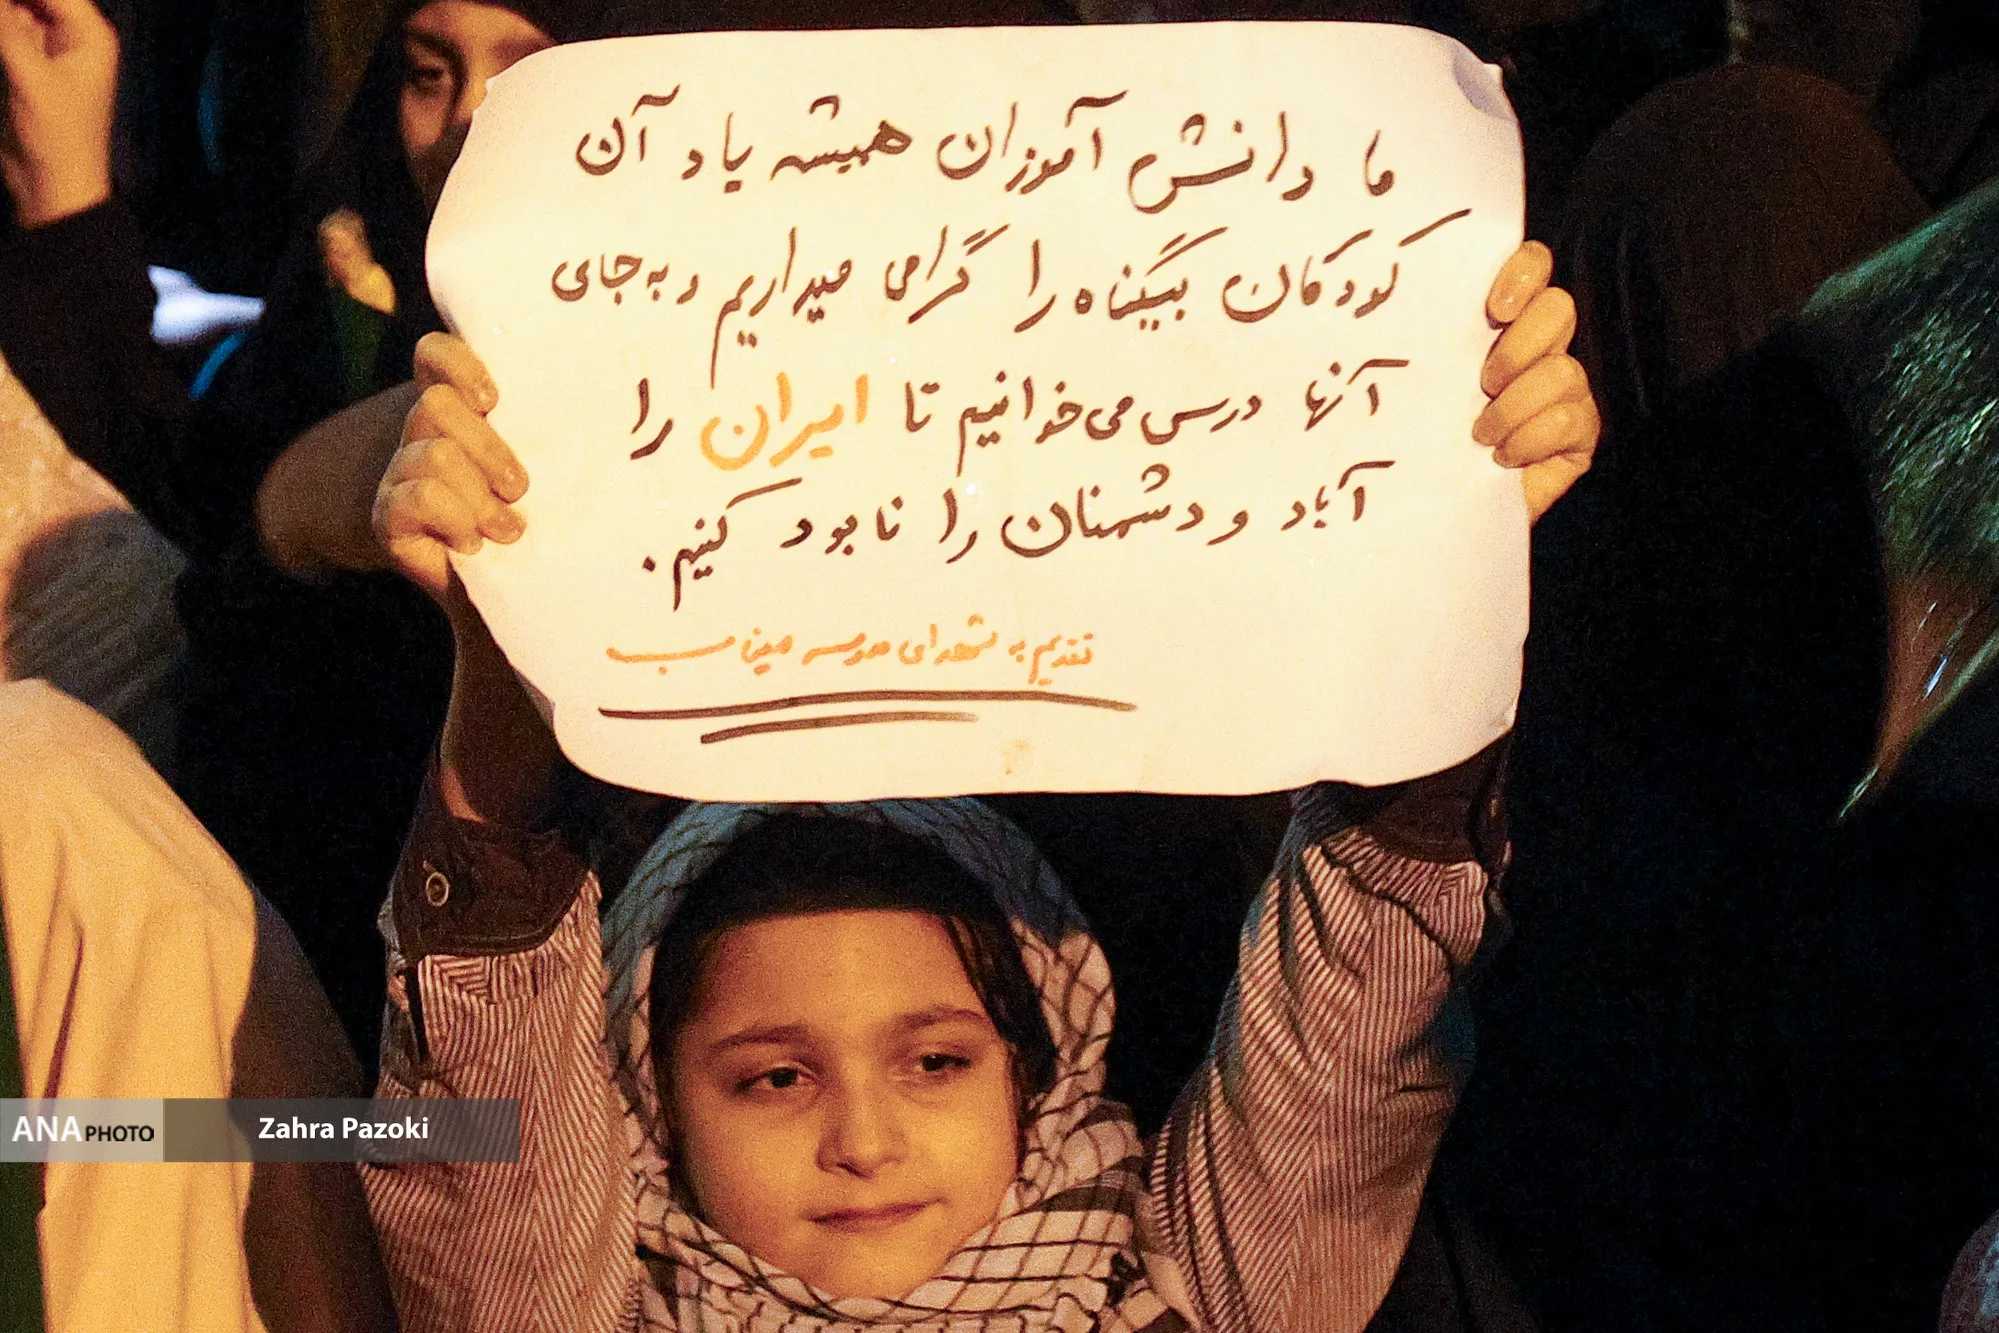 ما دانش آموزان همیشه یاد آن
کودکان بیگناه را گرامی میداریم و به جای
آنها درس می‌خوانیم تا ایران را
آباد و دشمنان را نابود کنیم.
تقدیم به شهدای مدرسه میناب
ANA PHOTO
Zahra Pazoki